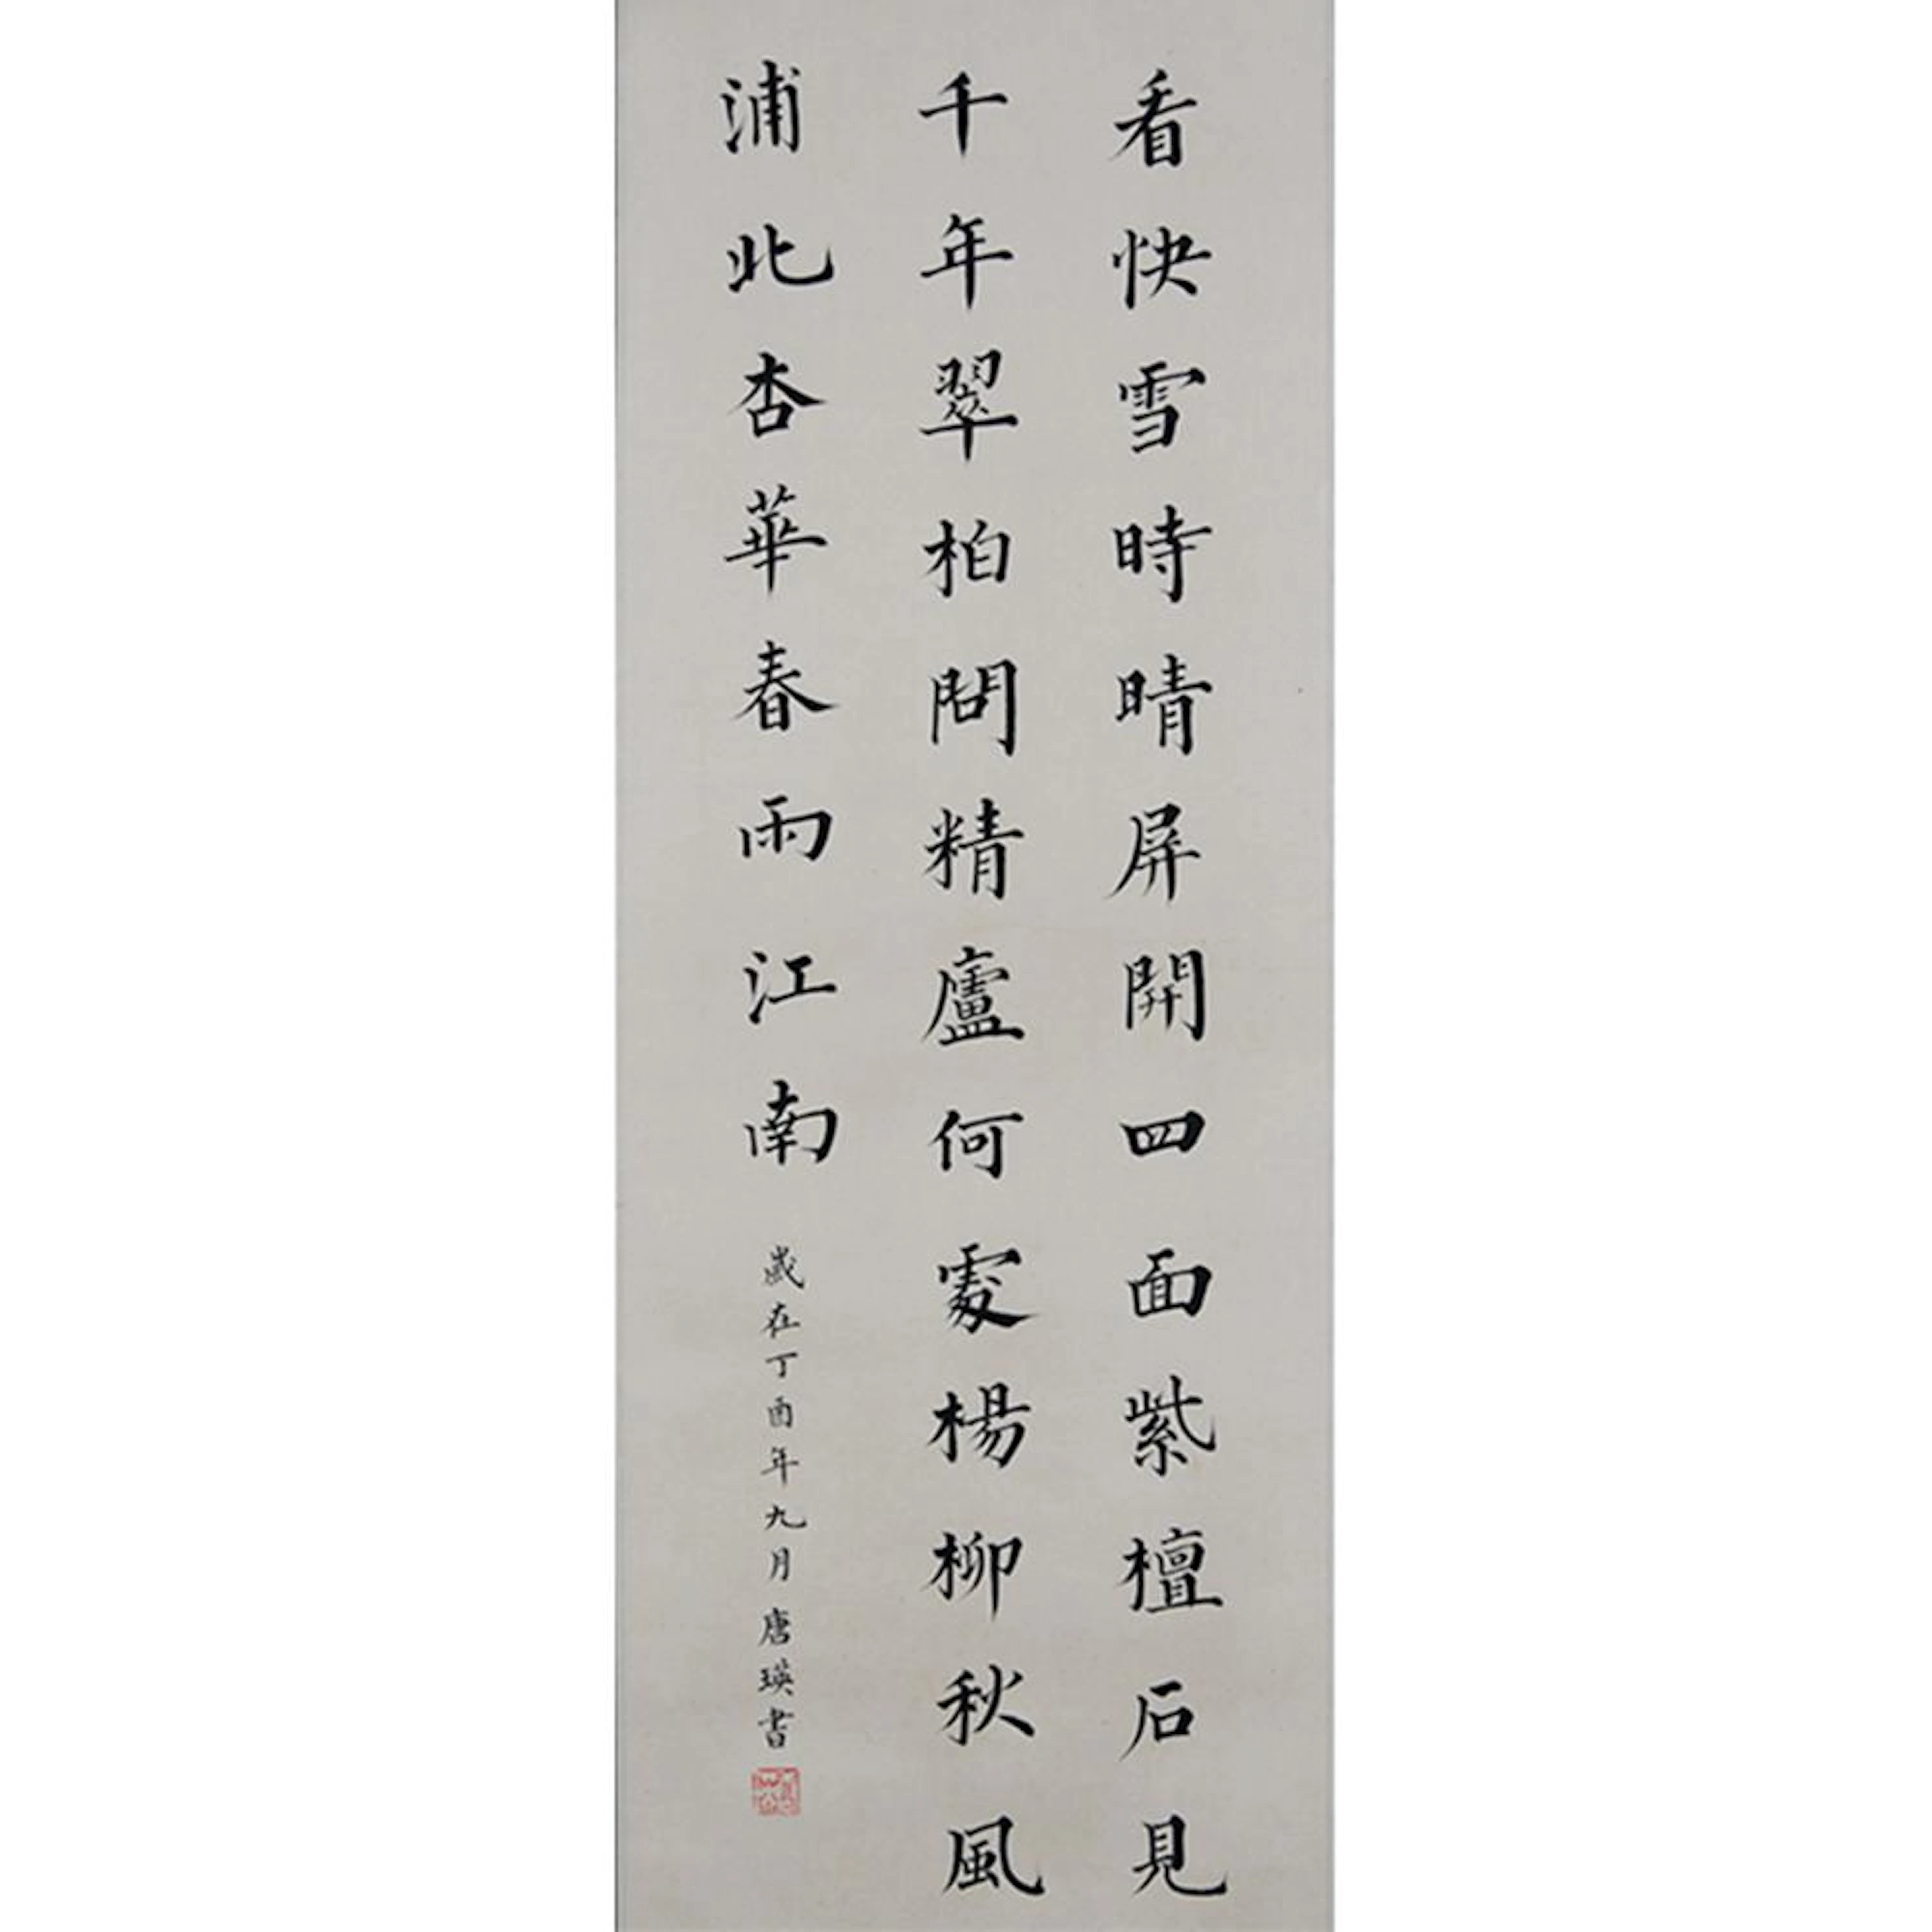 看快雪時晴屏開四面紫檀石見
千年翠柏問精廬何處楊柳秋風
浦北杏華春雨江南
歲在丁酉年九月唐瑛書